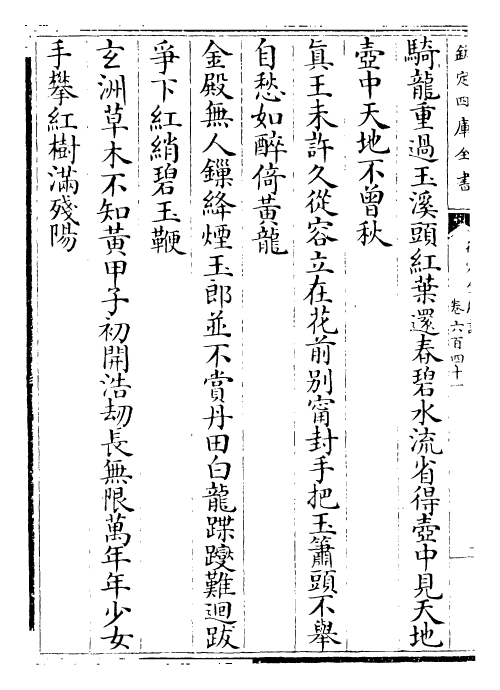 欽定四庫全書
卷六百四十一
騎龍重過玉溪頭紅葉還春碧水流省得壺中見天地
壺中天地不曾秋
真王未許久從容立在花前别甯封手把玉簫頭不舉
自愁如醉倚黄龍
金殿無人鏁絳煙玉郎並不賞丹田白龍蹀躞難迴跋
爭下紅綃碧玉鞭
玄洲草木不知黄甲子初開浩劫長無限萬年年少女
手攀紅樹滿殘陽